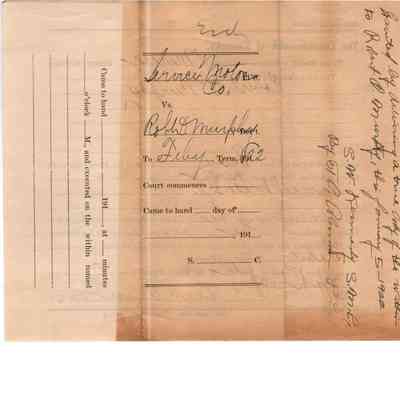 Service Motor Pltff.
Co.
Vs.
Robt P Murphy Deft.
To Feby Term, 1922
Court commences
Came to hand day of
191
S. C.
Came to hand 191 , at minutes
o'clock M., and executed on the within named
Served by leaving a true copy of the within
to Robert P Murphy this January 5 - 1922
S. W. Kennedy S.
By